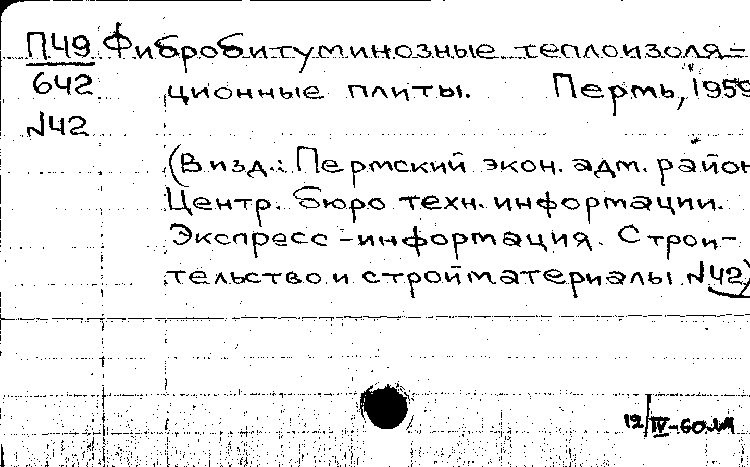 П49 Фибробитуминозные теплоизоля-
642 ционные плиты. Пермь, 1959
N42
(В изд.: Пермский экон. адм. район
Центр. бюро техн. информации.
Экспресс-информация. Строи-
тельство и стройматериалы N42)
12/IV-60